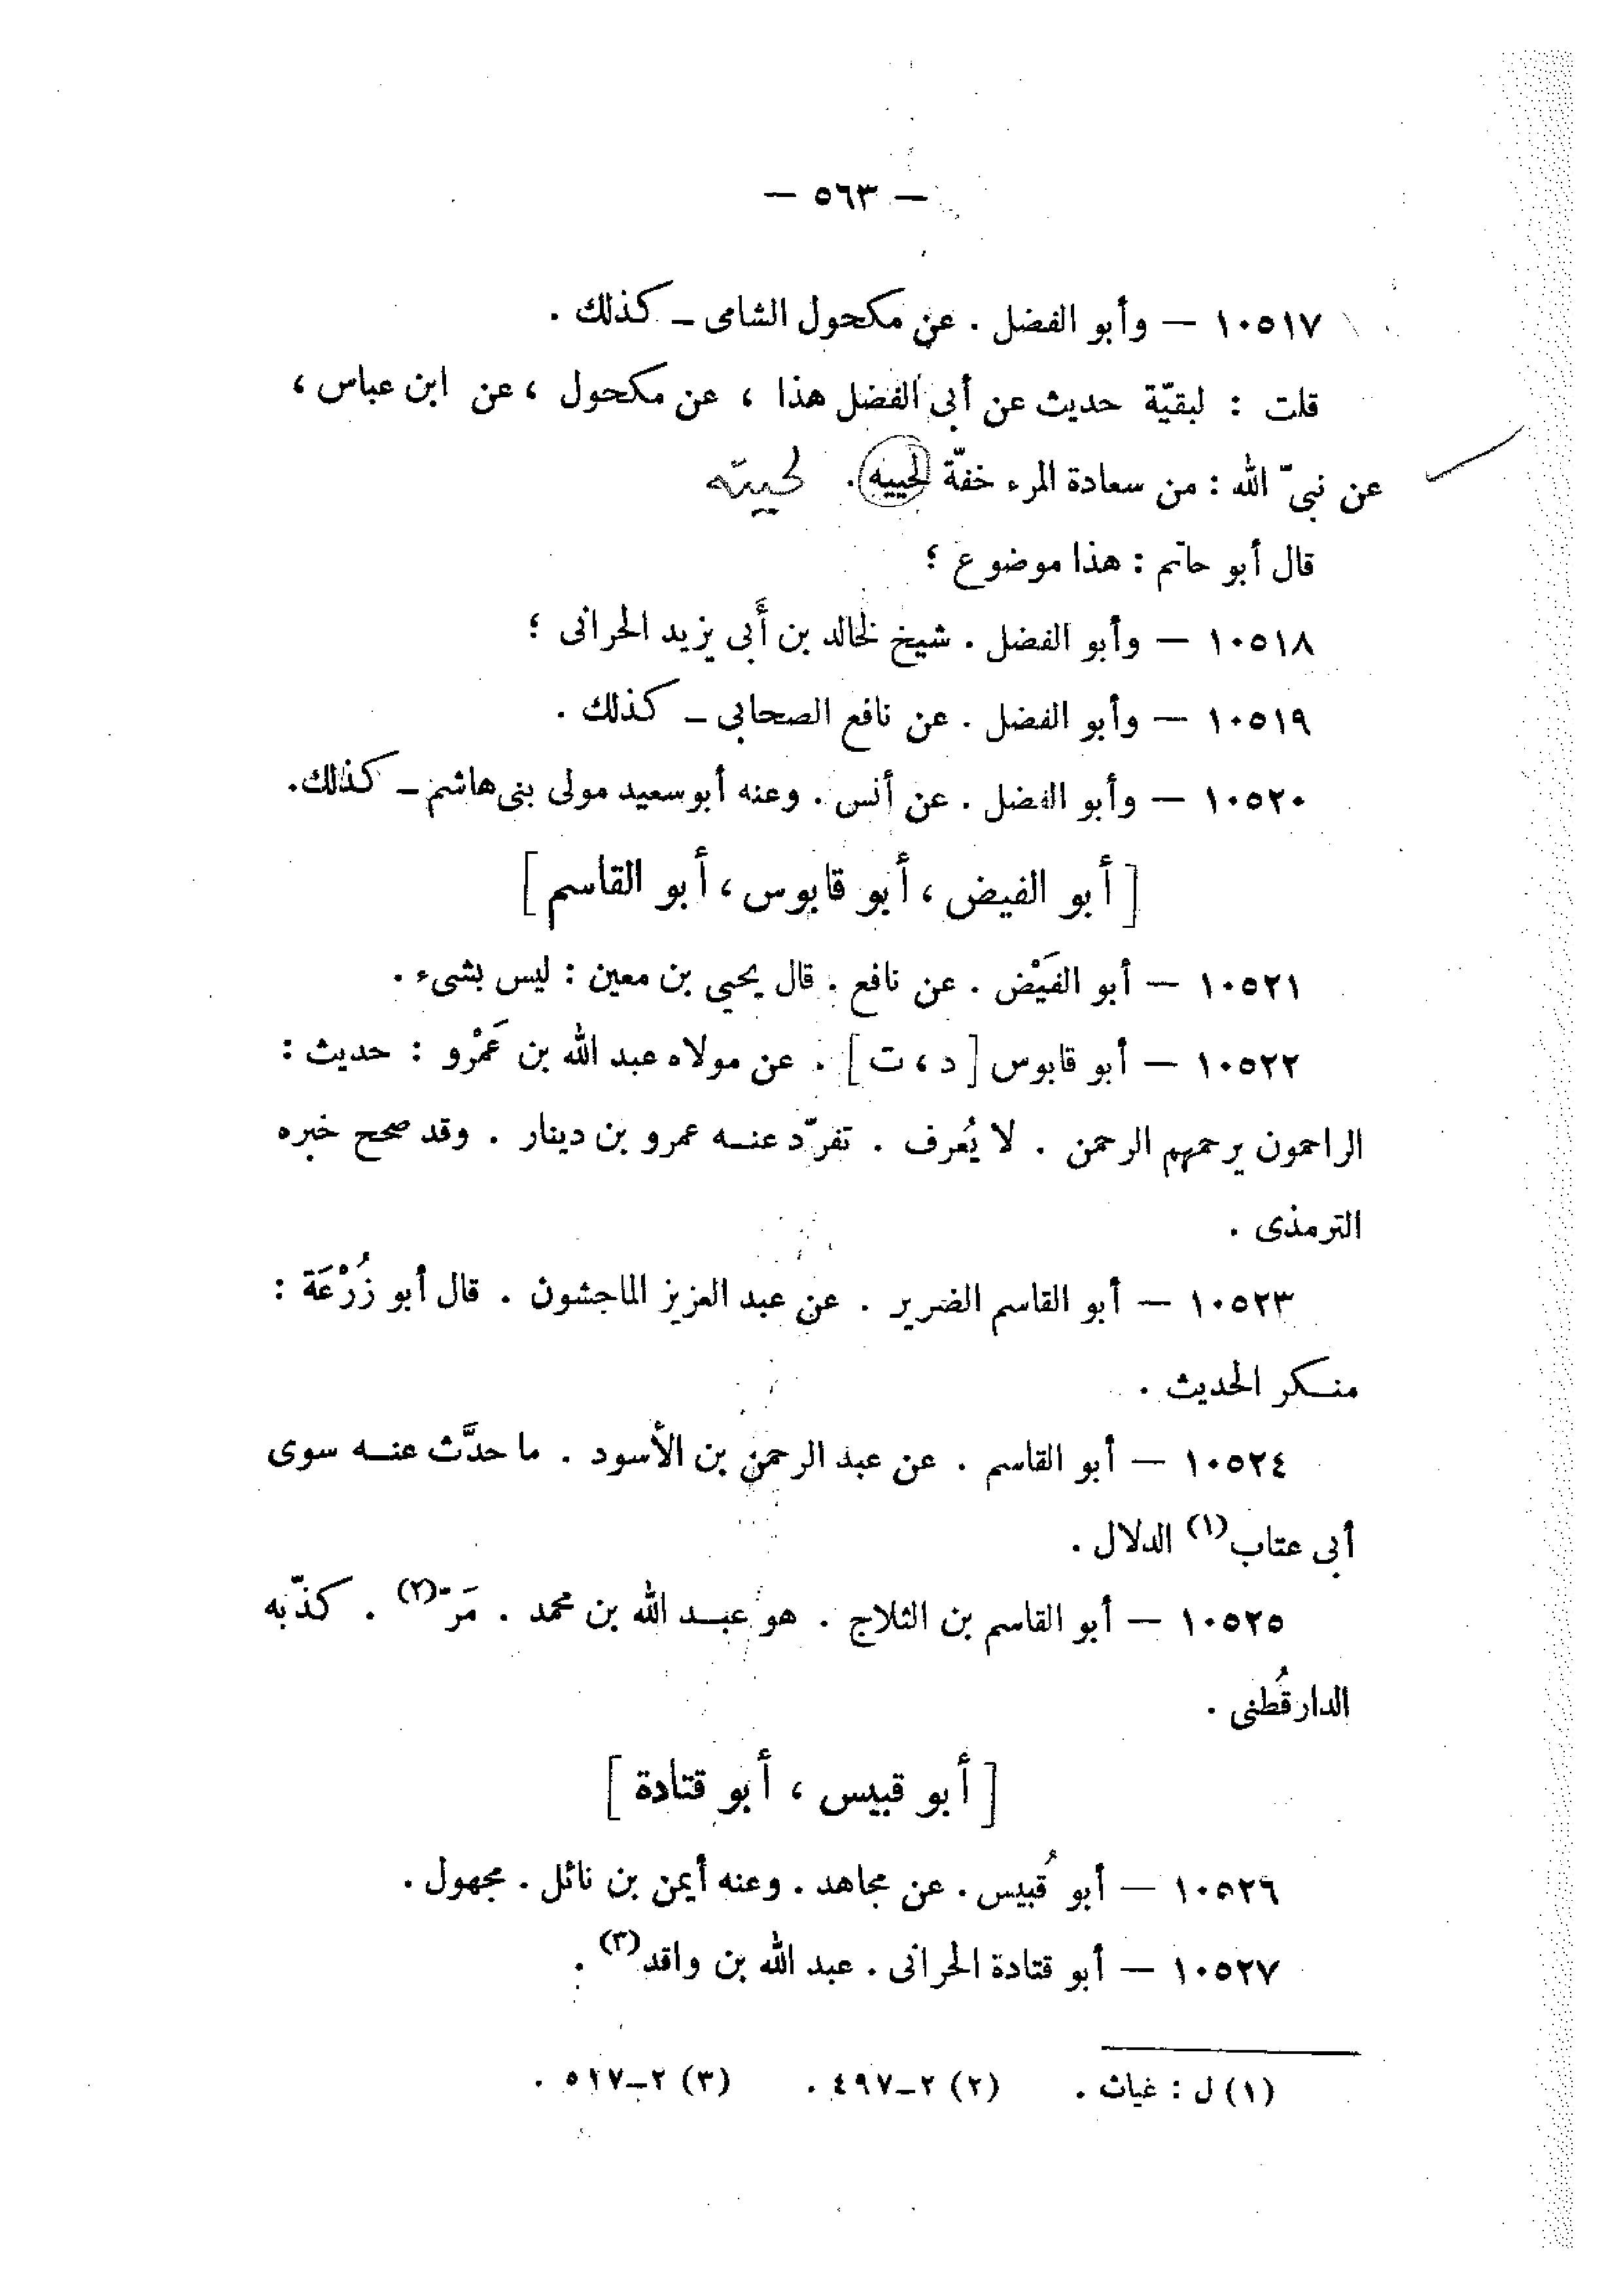 — ٥٦٣ —
١٠٥١٧ — وأبو الفضل . عن مكحول الشامى — كذلك .
قلت : لبقيّة حديث عن أبى الفضل هذا ، عن مكحول ، عن ابن عباس ،
عن نبىّ الله : من سعادة المرء خفّة لحييه . لحيته
قال أبو حاتم : هذا موضوع ؛
١٠٥١٨ — وأبو الفضل . شيخ لخالد بن أَبي يزيد الحرانى ؛
١٠٥١٩ — وأبو الفضل . عن نافع الصحابي — كذلك .
١٠٥٢٠ — وأبو الفضل . عن أنس . وعنه أبو سعيد مولى بنى هاشم — كذلك.
[ أبو الفيض ، أبو قابوس ، أبو القاسم ]
١٠٥٢١ — أبو الفَيْض . عن نافع . قال يحيى بن معين : ليس بشىء .
١٠٥٢٢ — أبو قابوس [ د ، ت ] . عن مولاه عبد الله بن عَمْرو : حديث :
الراحمون يرحمهم الرحمن . لا يُعرف . تفرّد عنه عمرو بن دينار . وقد صحح خبره
الترمذى .
١٠٥٢٣ — أبو القاسم الضرير . عن عبد العزيز الماجشون . قال أبو زُرْعَة :
منكر الحديث .
١٠٥٢٤ — أبو القاسم . عن عبد الرحمن بن الأسود . ما حدَّث عنه سوى
أبى عتاب(١) الدلال .
١٠٥٢٥ — أبو القاسم بن الثلاج . هو عبد الله بن محمد . مَرّ(٢) . كذّبه
الدارقُطنى .
[ أبو قبيس ، أبو قتادة ]
١٠٥٢٦ — أبو قُبيس . عن مجاهد . وعنه أيمن بن نائل . مجهول .
١٠٥٢٧ — أبو قتادة الحرانى . عبد الله بن واقد(٣) .
(١) ل : غياث . (٢) ٢—٤٩٧ . (٣) ٢—٥١٧ .